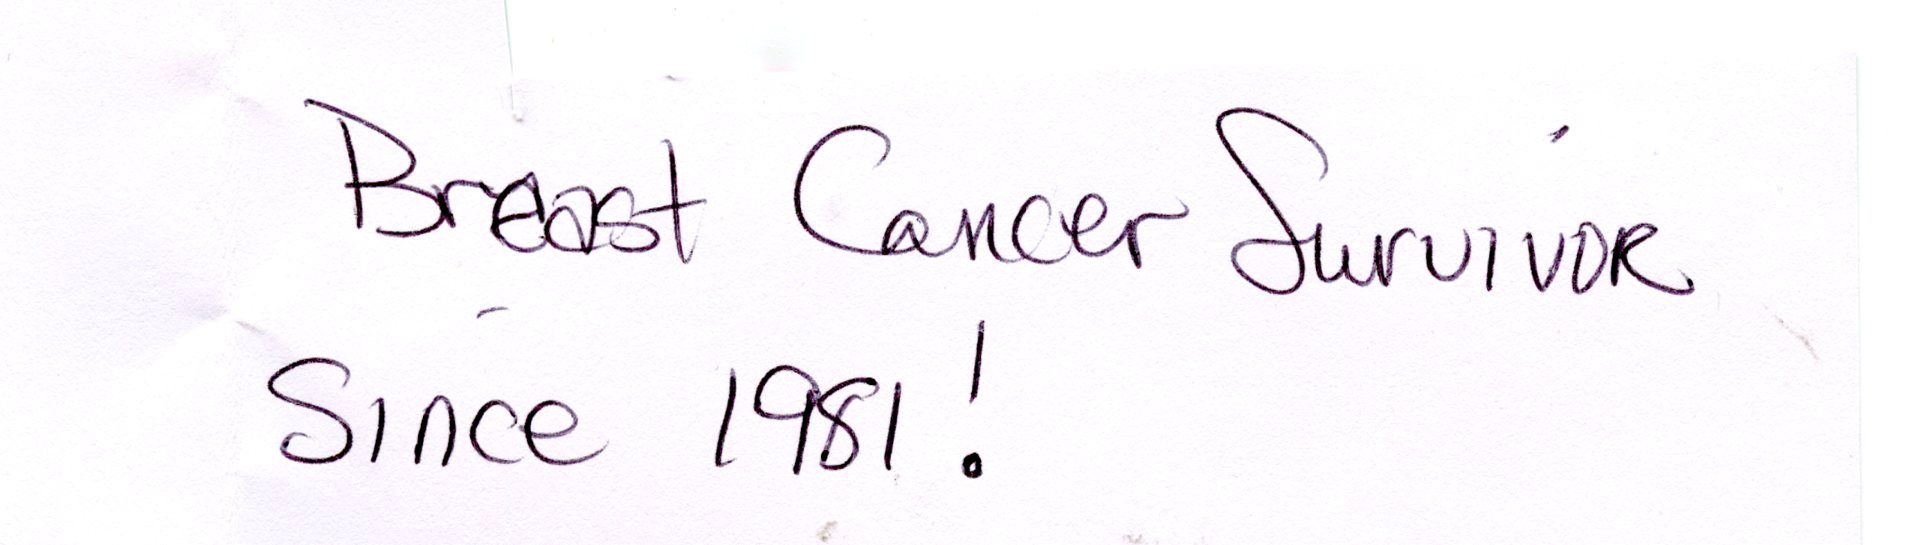 Breast Cancer Survivor
Since 1981!